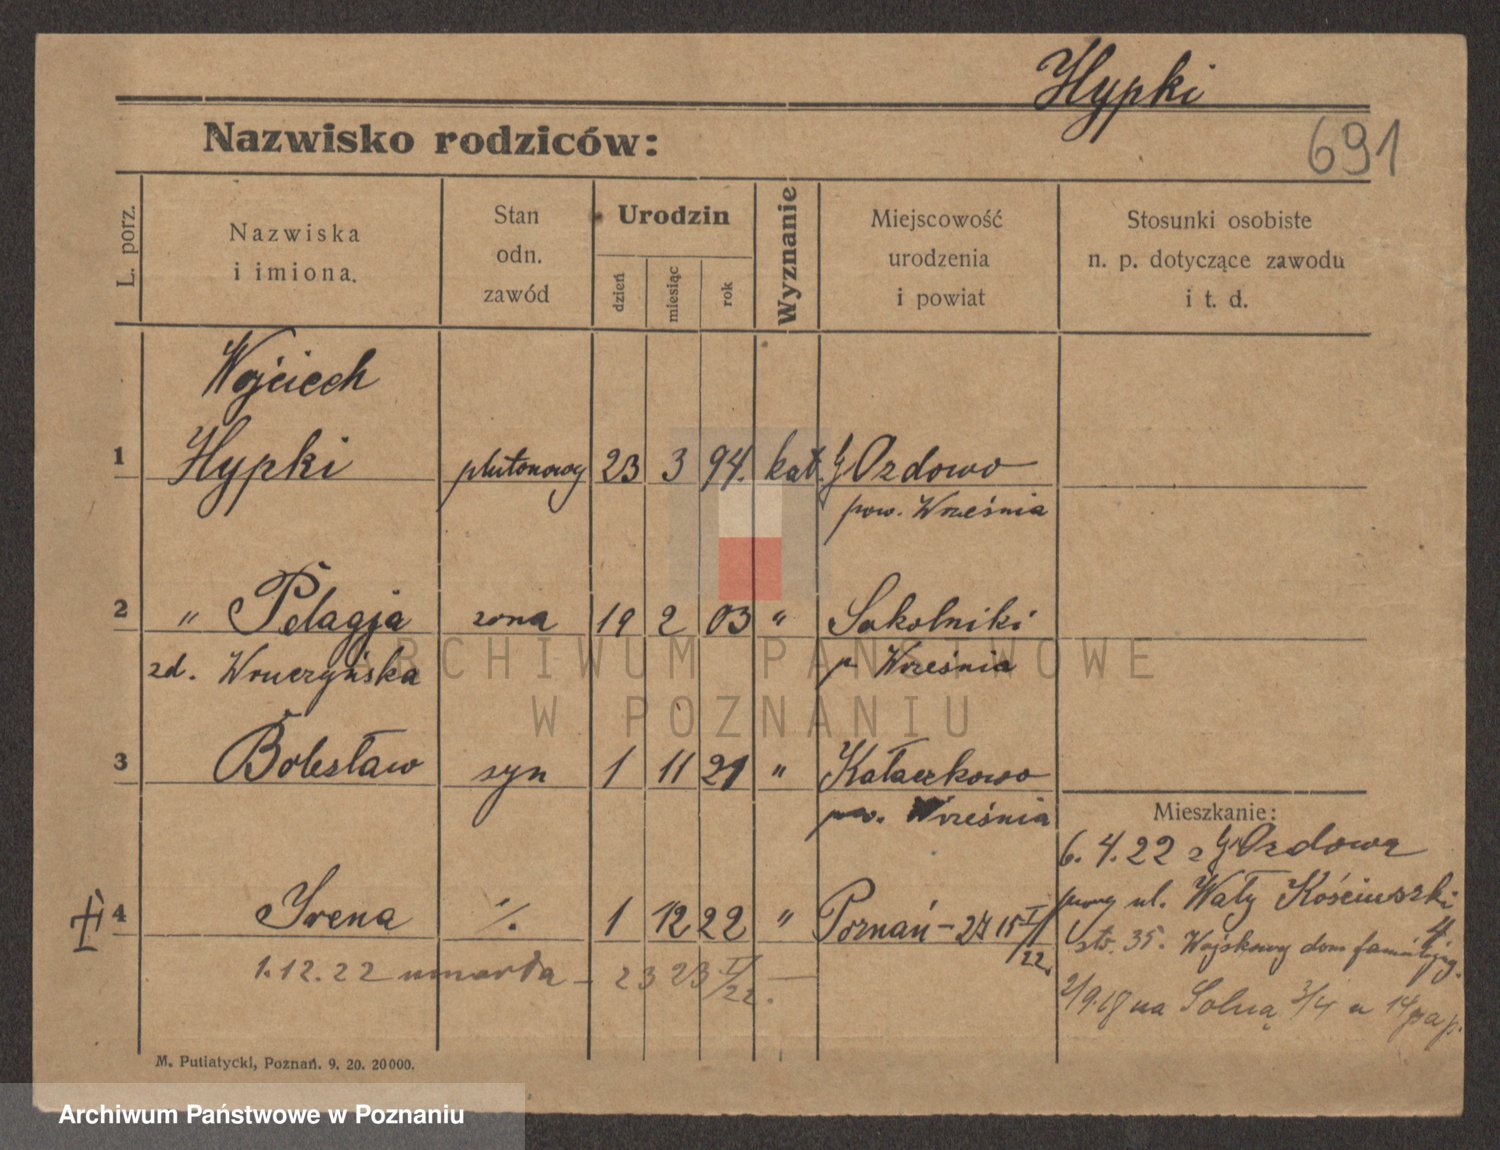 Hypki
Nazwisko rodziców:
691
L. porz.
Nazwiska
i imiona.
Stan
odn.
zawód
Urodzin
dzień
miesiąc
rok
Wyznanie
Miejscowość
urodzenia
i powiat
Stosunki osobiste
n. p. dotyczące zawodu
i t. d.
Wojciech
1 Hypki plutonowy 23 3 94. kat. Gozdowo
pow. Września
2 " Pelagja zona 19 2 03 " Sokolniki
zd. Wruczyńska p. Września
3 Bolesław syn 1 11 21 " Kołaczkowo
pow. Września
Mieszkanie:
6. 4. 22 z Gozdowa
przy ul. Wały Kościuszki 4
4 Irena ·/. 1 12 22 " Poznań - 27 15 I/22.
str. 35. Wojskowy dom familijny.
1.12.22 umarła - 23 23 I/22. —
2/9.  na Solną 3/4 u
M. Putiatycki, Poznań. 9. 20. 20000.
ARCHIWUM PAŃSTWOWE
W POZNANIU
Archiwum Państwowe w Poznaniu